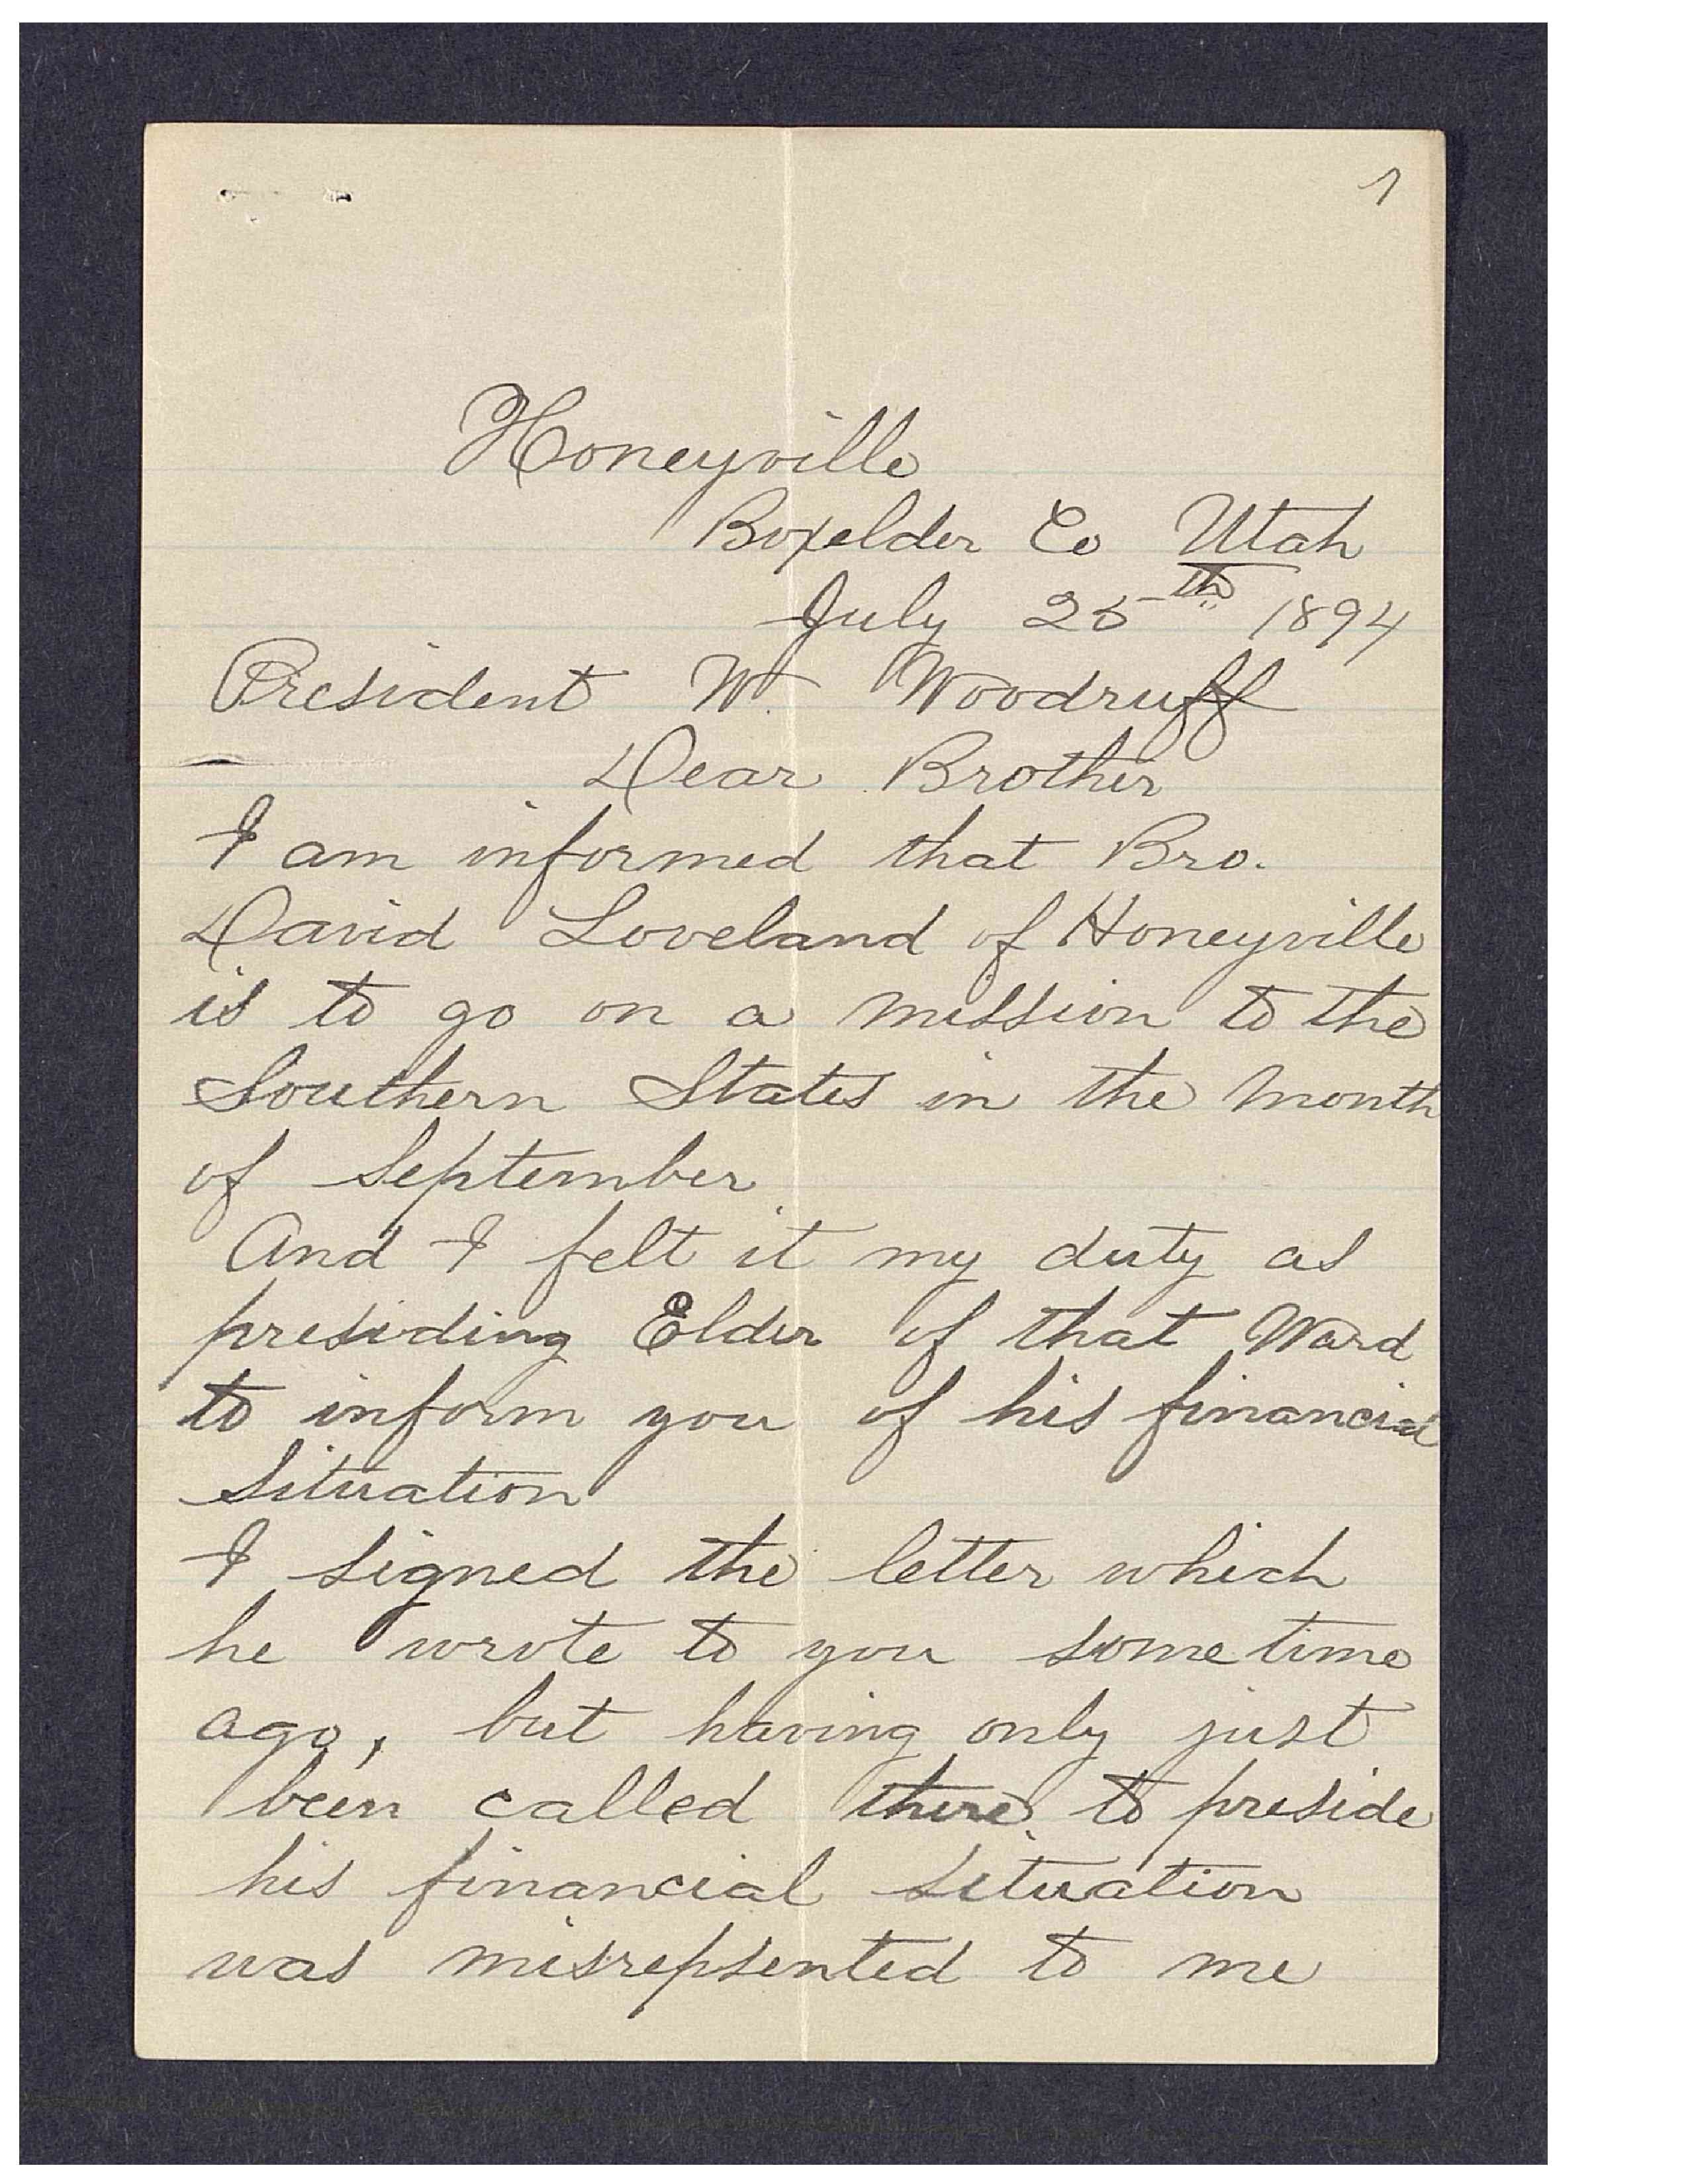 1
Honeyville
Boxelder Co Utah
July 25th 1894
President W. Woodruff
Dear Brother
I am informed that Bro.
David Loveland of Honeyville
is to go on a mission to the
Southern States in the month
of September
And I felt it my duty as
presiding Elder of that Ward
to inform you of his financial
situation
I signed the letter which
he wrote to you some time
ago, but having only just
been called there to preside
his financial situation
was misrepsented to me